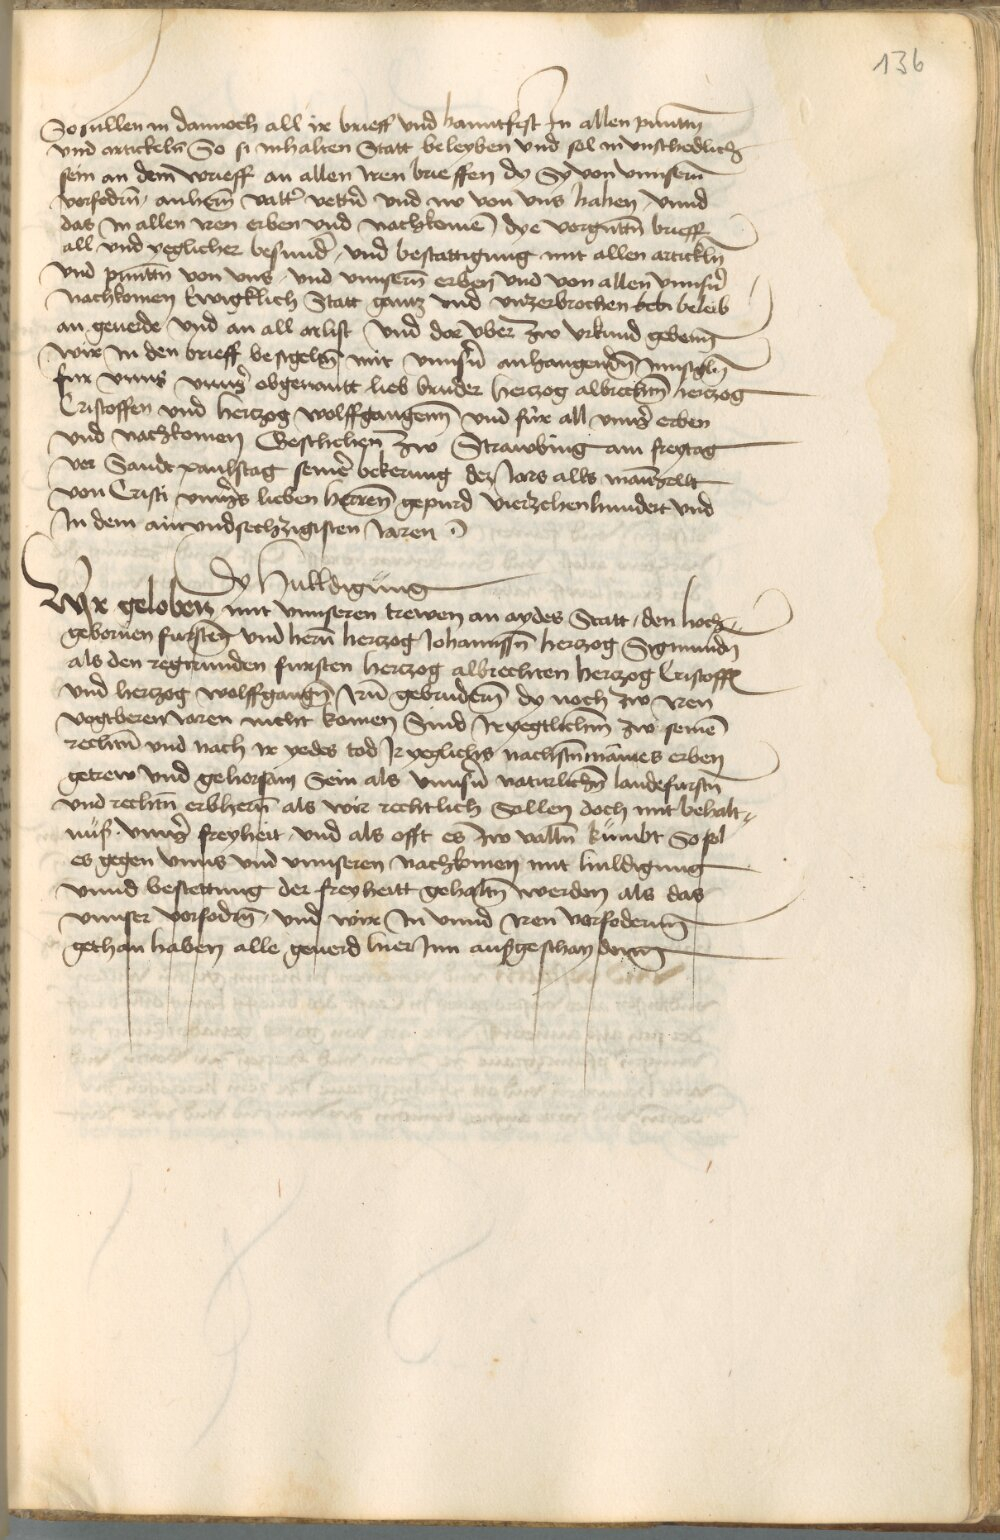 136
So sullen in dannoch all ir brieff und hanntfest In allen punttn̄
und artickeln̄ So si inhalten Statt beleyben und sol in unschedlich
sein an dem brieff an allen Iren brieffen dy Sy von unnsern̄
vorfodrn̄ anhern̄ vatt̄ vettn̄ und nv von uns haben unnd
das In allen iren erben und nachkomen̄ dye vorgnttn̄ brieff
all und yeglicher besund̄ und bestattigung mit allen artickln̄
und punttn̄ von uns und unnsern̄ erben und von allen unnsn̄
nachkomen Ewigklich Statt gantz und unzerbrochen beleib
an geuerde und an all arlist und dar uber zw urkund geben
wir In den brieff besigeltn̄ mit unnsn̄ anhangendn̄ Innsigln̄
fur unns unns̄ obgenantt lieb bruder hertzog albrechtn̄ hertzog
Cristoffen und hertzog wolffgangenn̄ und fur all unns̄ erben
und nachkomen Geschehen zw Strawbing am freytag
vor Sandt paulstag sein̄ bekerung des Jars alls man zellt
von Cristi unns̄s lieben herren̄ gepurd vierzehenhundert und
In dem ain undsechzigisten Jaren
Dy Hulldigung
Wir geloben mit unnseren trewen an aydes Statt den hoch
gebornen fursten̄ und hern̄ hertzog Johannssn̄ hertzog Sigmundn̄
als den regirunden fursten hertzog albrechten hertzog Cristoffn̄
und hertzog wolffgangn̄ Irn̄ gebrudern̄ dy noch zw iren
vogtberen Jaren nicht komen Sind Ir yegtlichm̄ zw seinē
rechtn̄ und nach ir yedes tod Ir yeglichs nachstn̄ mannes erben
getrew und gehorsam Sein als unnsn̄ naturlichn̄ landsfurstn̄
und rechtn̄ erbhern̄ als wir rechtlich Sollen doch mit behalt
nüß unns̄ freyheit und als offt es zw valln̄ kümbt So sol
es gegen unns und unnseren nachkomen mit huldigung
unnd bestettung der freyheitt gehaltn̄ werden als das
unnser vorfodrn̄ und wir In unnd iren vorfoderen̄
gethan haben alle geuerd hier Inn außgeschayden